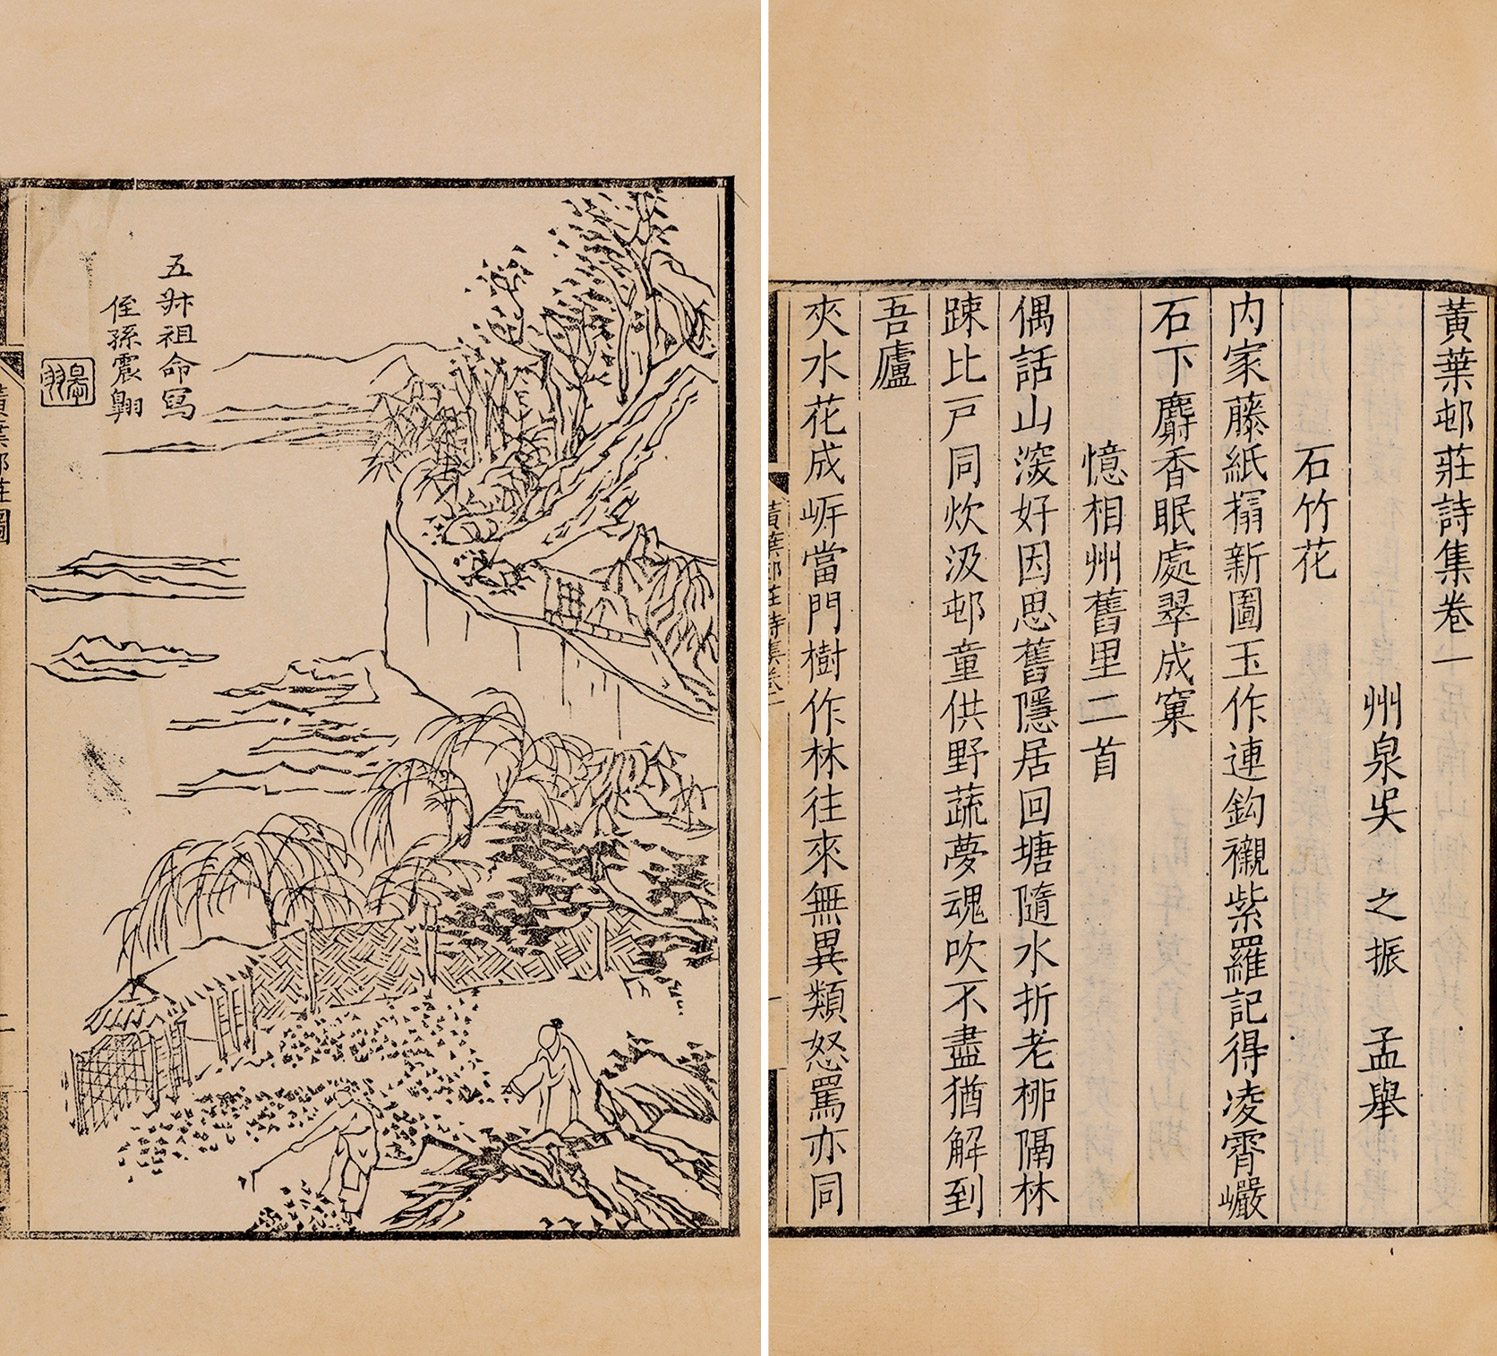 五叔祖命寫
侄孫震翱
黃葉邨莊圖
二
黃葉邨莊詩集卷一
州泉吳之振孟舉
石竹花
內家藤紙搨新圖玉作連鈎襯紫羅記得凌霄巖
石下麝香眠處翠成窠
憶相州舊里二首
偶話山深好因思舊隱居回塘隨水折老栁隔林
踈比戸同炊汲邨童供野蔬夢魂吹不盡猶解到
吾廬
夾水花成㟁當門樹作林往來無異類怒罵亦同
黃葉邨莊詩集卷一
一